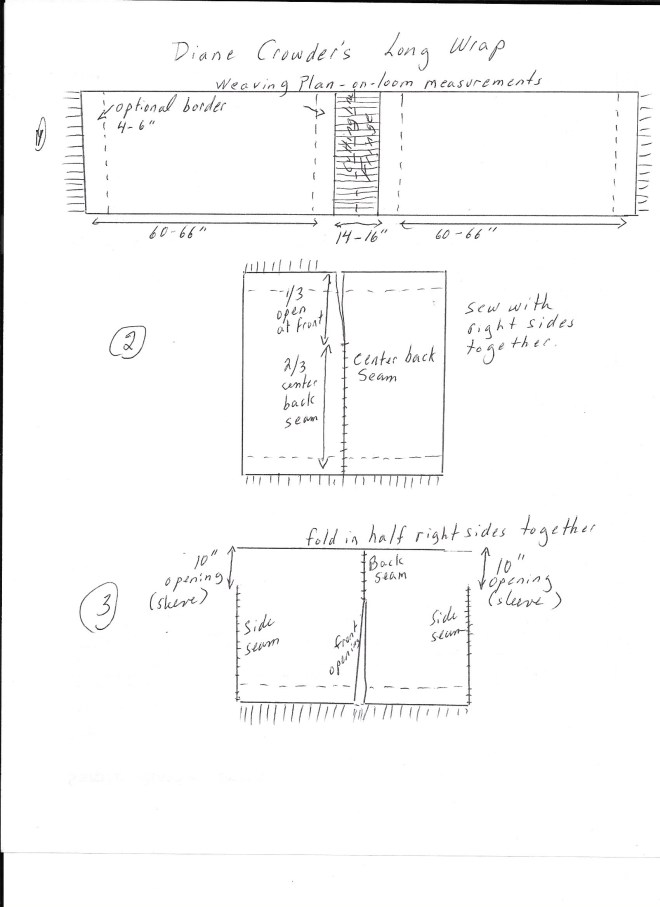 Diane Crowder's Long Wrap
Weaving Plan-on-loom measurements
optional border
4-6"
cutting line
fringe
1
60-66"
14-16"
60-66"
2
1/3
open
at front
2/3
center
back
seam
center back
Seam
sew with
right sides
together.
3
fold in half right sides together
10"
opening
(sleeve)
Back
seam
10"
opening
(sleeve)
Side
seam
front
opening
Side
seam